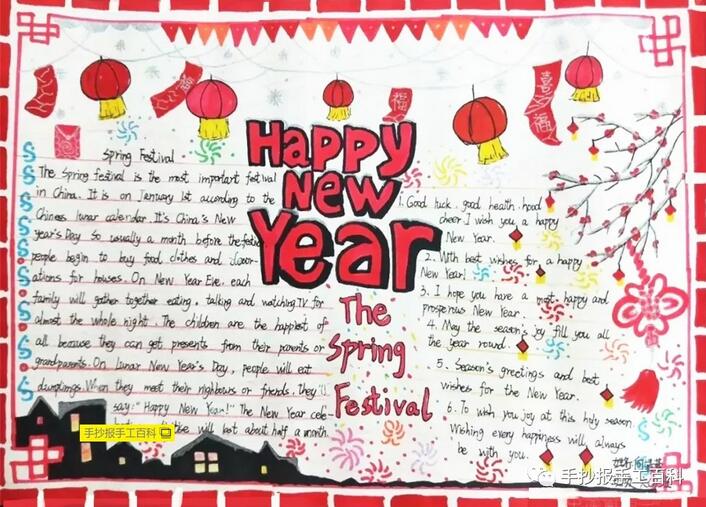 Happy
New
Year
The
Spring
Festival
Spring Festival
The Spring festival is the most important festival
in China. It is on January 1st according to the
Chiness lunar calendar. It's China's New
year's Day. So usually a month before the festival
people begin to buy food clothes and
ations for houses. On New Year Eve, each
family will gather together eating, talking and watching TV for
almost the whole night. The children are the happiest of
all because they can get presents from their parents or
grandparents. On Lunar New Year's Day, people will eat
dumplings. When they meet their neighbours or friends, they'll
say: "Happy New Year!" The New Year celeb
will last about half a month.
1. Good luck, good health, hood
cheer. I wish you a happy
New Year.
2. With best wishes for a happy
New Year!
3. I hope you have a most happy and
prosperous New Year.
4. May the season's joy fill you all
the year round.
5. Season's greetings and best
wishes for the New Year.
6. To wish you joy at this holy season.
Wishing every happiness will always
be with you.
福
福
喜
福
手抄报手工百科
手抄报手工百科